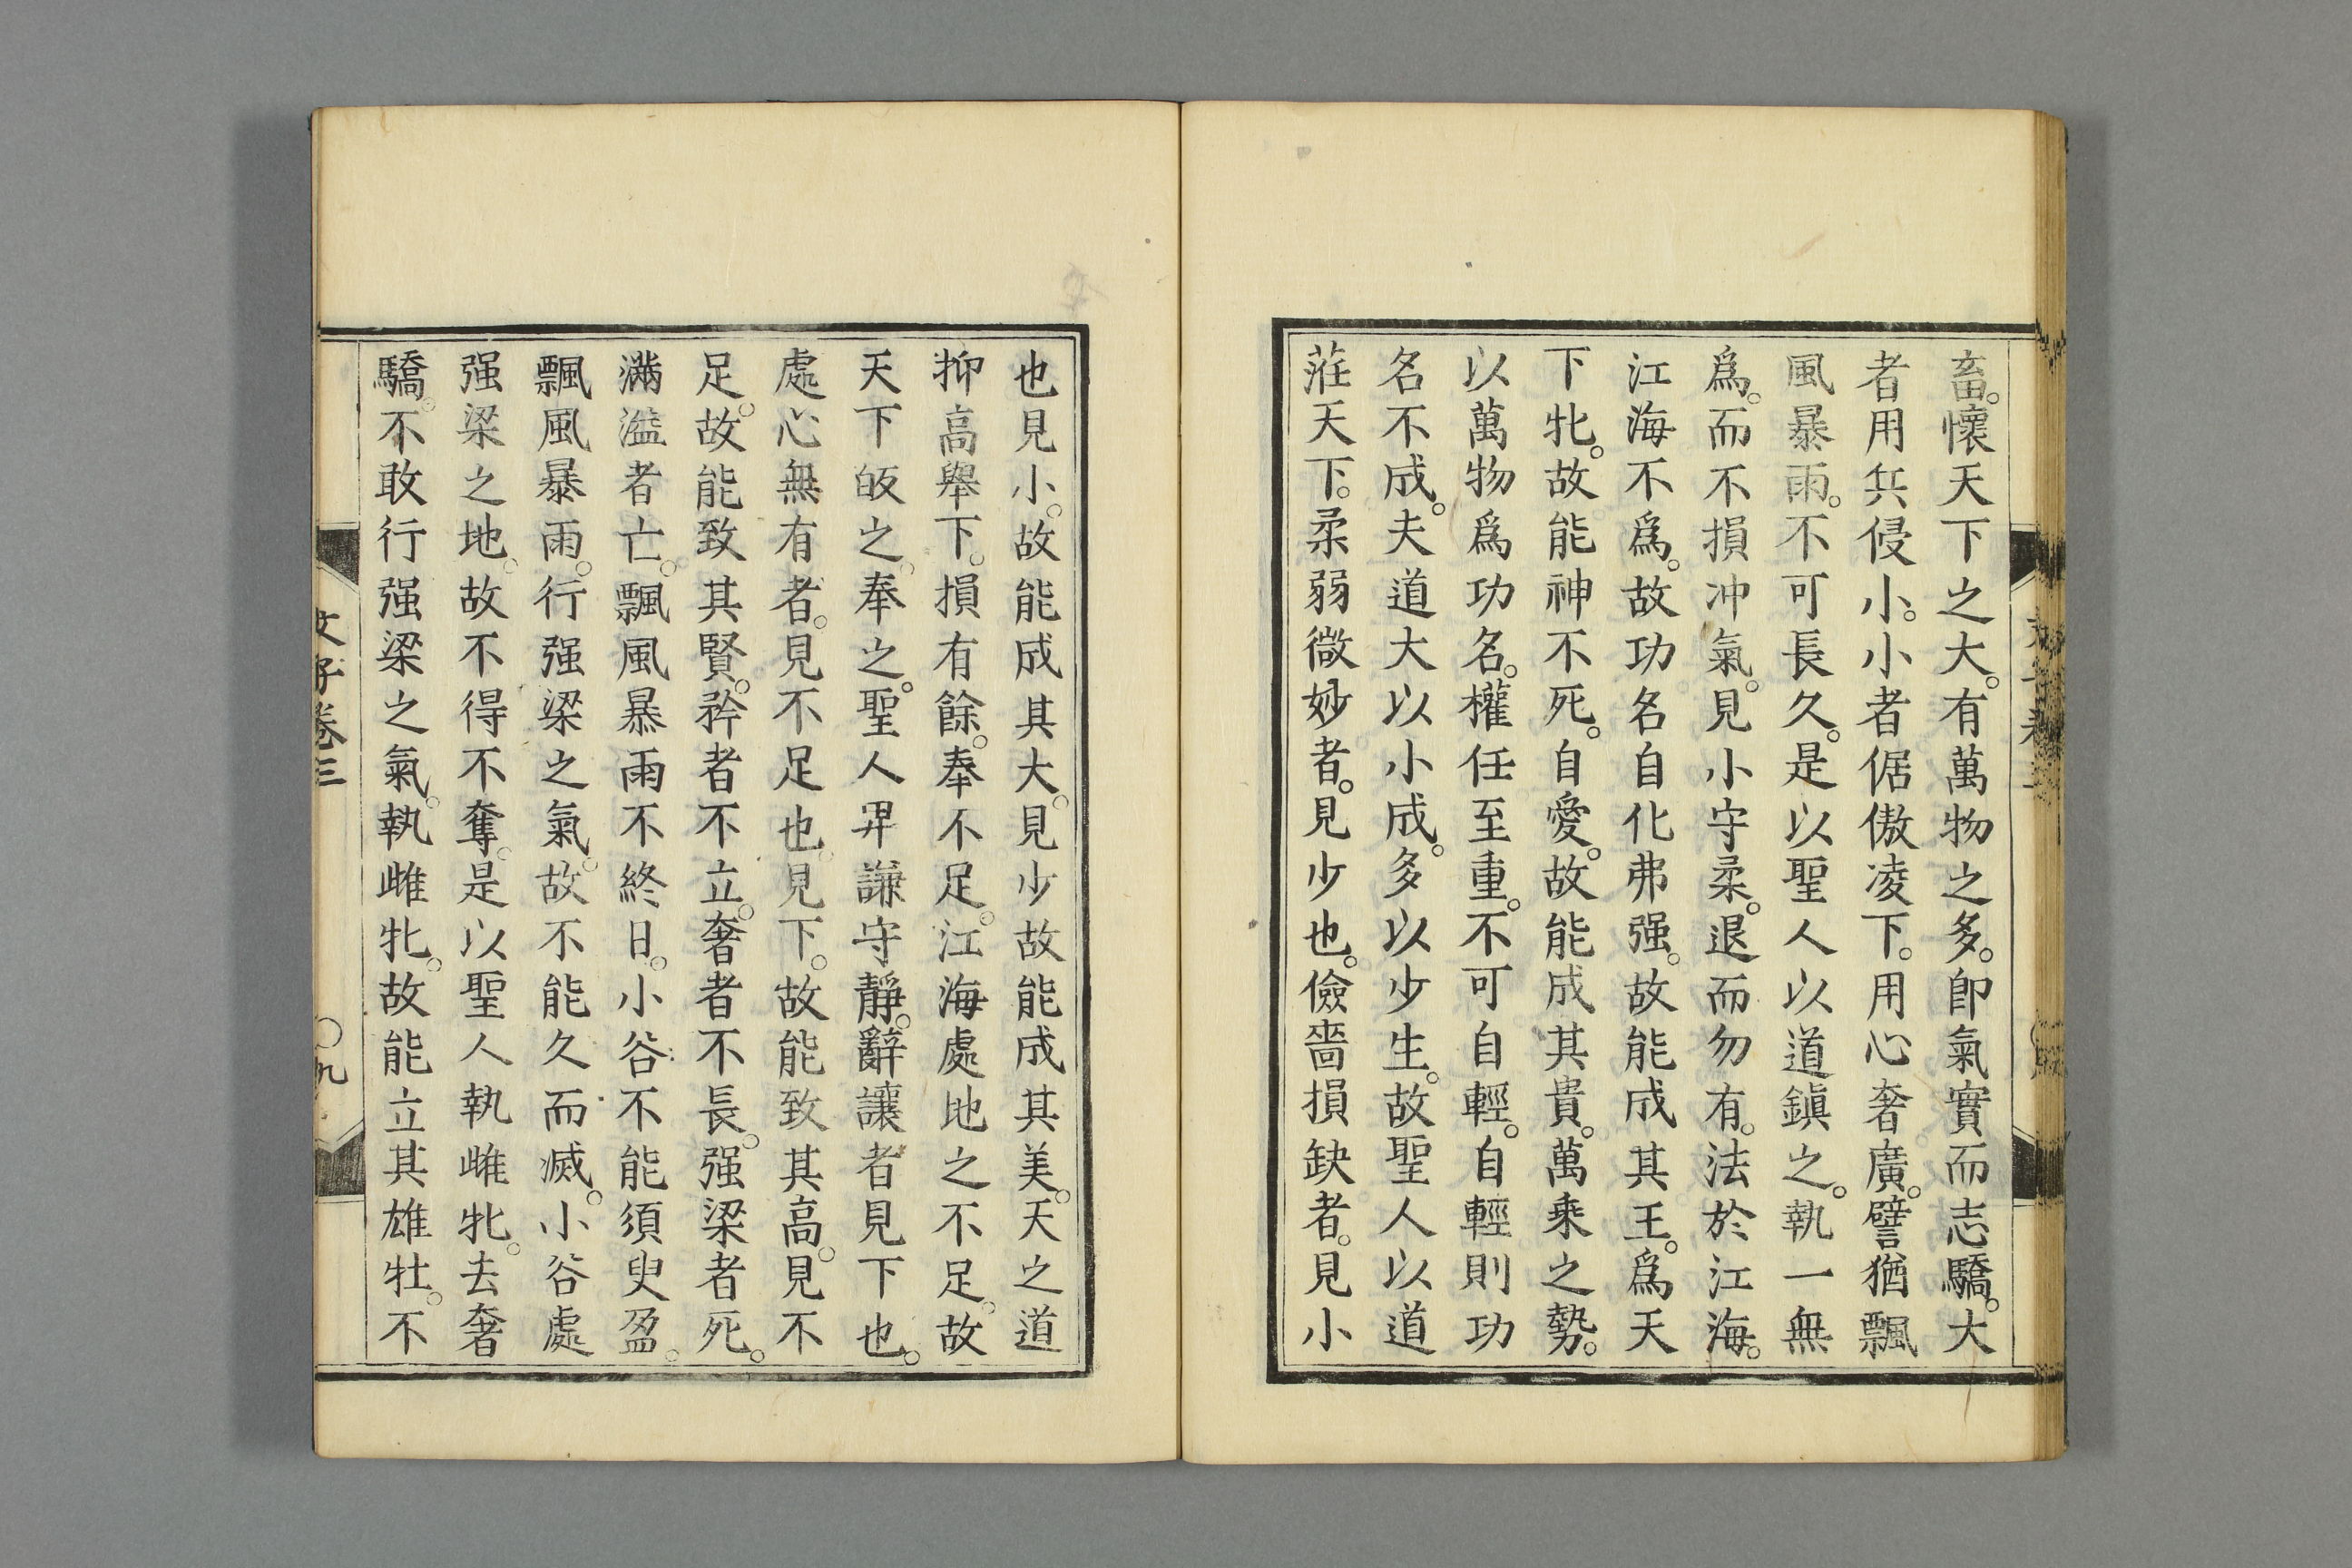 畜。懷天下之大。有萬物之多。卽氣實而志驕。大
者用兵侵小。小者倨傲凌下。用心奢廣。譬猶飄
風暴雨。不可長久。是以聖人以道鎭之。執一無
爲。而不損冲氣。見小守柔。退而勿有。法於江海。
江海不爲。故功名自化弗强。故能成其王。爲天
下牝。故能神不死。自愛。故能成其貴。萬乘之勢。
以萬物爲功名。權任至重。不可自輕。自輕則功
名不成。夫道大以小成。多以少生。故聖人以道
莅天下。柔弱微妙者。見少也。儉嗇損缺者。見小
也見小。故能成其大。見少故能成其美。天之道
抑高舉下。損有餘。奉不足。江海處地之不足。故
天下皈之。奉之。聖人𢌿謙守靜。辭讓者見下也。
處心無有者。見不足也。見下。故能致其高。見不
足。故能致其賢。矜者不立。奢者不長。强梁者死。
滿溢者亡。飄風暴雨不終日。小谷不能須臾盈。
飄風暴雨。行强梁之氣。故不能久而滅。小谷處
强梁之地。故不得不奪。是以聖人執雌牝。去奢
驕。不敢行强梁之氣。執雌牝。故能立其雄牡。不
文子卷三
〇九